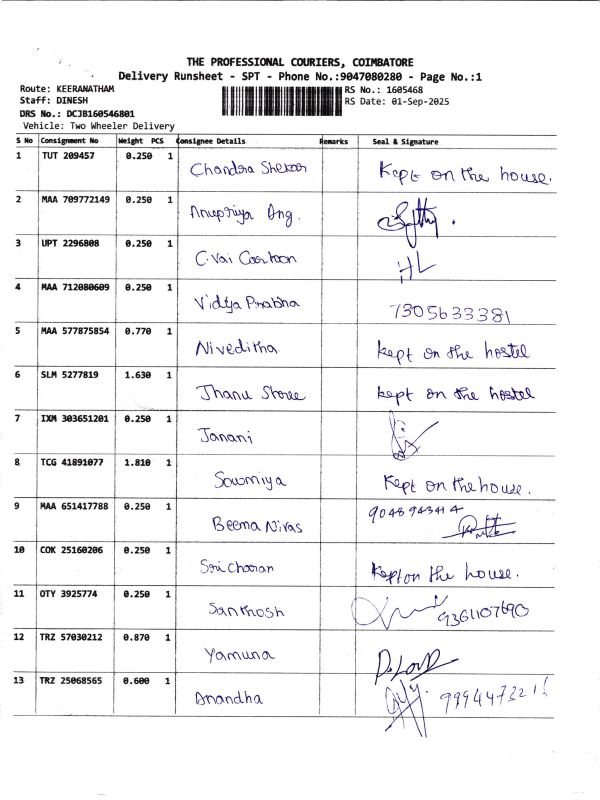 THE PROFESSIONAL COURIERS, COIMBATORE
Delivery Runsheet - SPT - Phone No.:9047080280 - Page No.:1
Route: KEERANATHAM RS No.: 1605468
Staff: DINESH RS Date: 01-Sep-2025
DRS No.: DCJB160546801
Vehicle: Two Wheeler Delivery
S No Consignment No Weight PCS Consignee Details Remarks Seal & Signature
1 TUT 209457 0.250 1 Chandra Shekar Kept on the house.
2 MAA 709772149 0.250 1 Anupriya Ang.
3 UPT 2296808 0.250 1 C.Vai Cartoon HL
4 MAA 712080609 0.250 1 Vidya Prabha 7305633381
5 MAA 577875854 0.770 1 Niveditha kept on the hostel
6 SLM 5277819 1.630 1 Thanu Store kept on the hostel
7 IXM 303651201 0.250 1 Janani
8 TCG 41891077 1.810 1 Sowmiya Kept on the house.
9 MAA 651417788 0.250 1 Beema Nivas 9048943414
10 COK 25160206 0.250 1 Sri Charan Kept on the house.
11 OTY 3925774 0.250 1 Santhosh 9361107690
12 TRZ 57030212 0.870 1 Yamuna
13 TRZ 25068565 0.600 1 Anandha